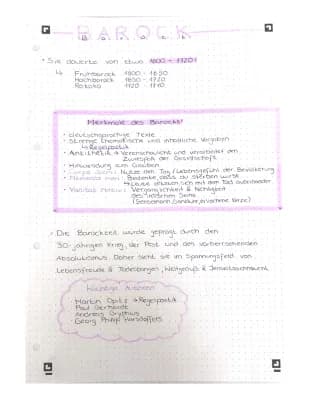 BAROCK
Barock
• Sie dauerte von etwa 1600 - 1720!
↳ Frühbarock 1600 - 1650
Hochbarock 1650 - 1720
Rokoko 1720 - 1770
Merkmale des Barocks!
• deutschsprachige Texte
• Strenge thematische und inhaltliche Vorgaben
↳ Regelpoetik
• Antithetik → Veranschaulicht und verarbeitet den
Zwiespalt der Gesellschaft
• Hinwendung zum Glauben
• Carpe diem: Nutze den Tag / Lebensgefühl der Bevölkerung
• Memento mori: Bedenke, dass du sterben wirst
↳ Leute setzten sich mit dem Tod auseinander
• Vanitas Motiv: Vergänglichkeit & Nichtigkeit
des irdischen Seins
(Sensenmann, Sanduhr, erloschene Kerze)
• Die Barockzeit wurde geprägt durch den
30-jährigen Krieg, der Pest und des vorherrschenden
Absolutismus. Daher steht sie im Spannungsfeld von
Lebensfreude & Todesbangen, Weltgenuß & Jenseitssehnsucht
Wichtige Autoren
Martin Opitz → Regelpoetik
Paul Gerhardt
Andreas Gryphius
Georg Philipp Harsdörffers